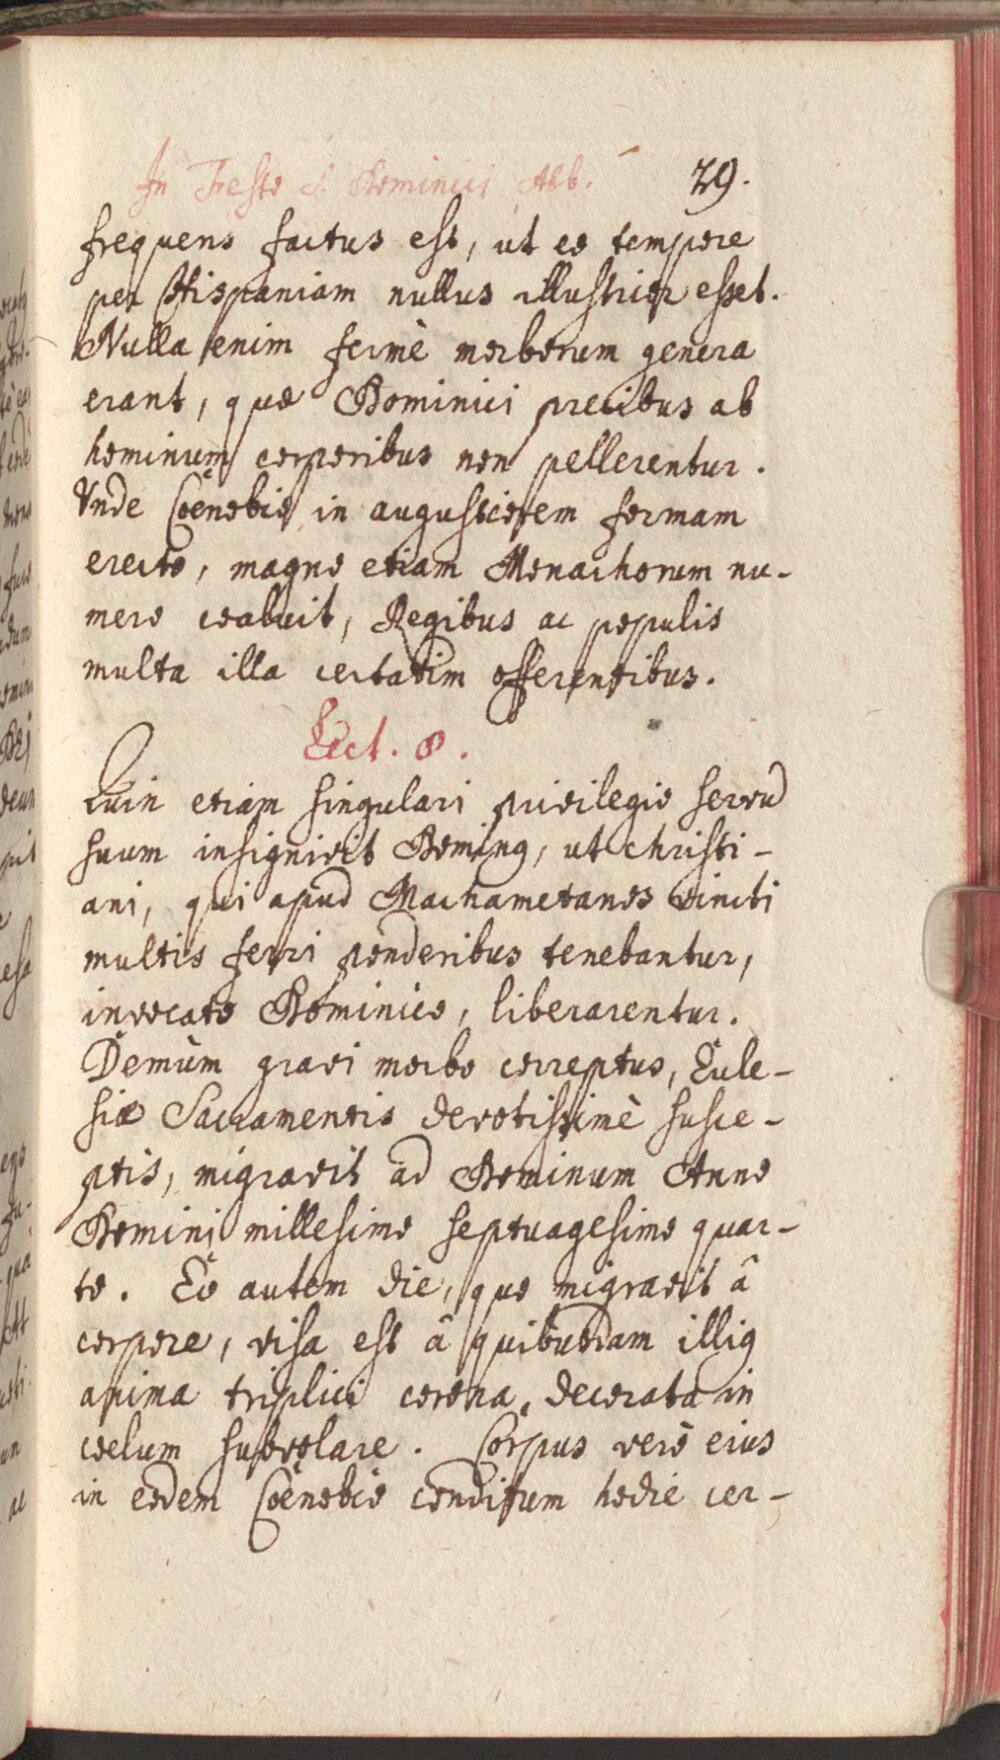 In Festo S. Dominici Abb. 29.
frequens factus est, ut eo tempore
per Hispaniam nullus illustrior esset.
Nulla enim fermè morborum genera
erant, quæ Dominici precibus ab
hominum corporibus non pellerentur.
Vnde Cœnobio in augustiorem formam
erecto, magno etiam Monachorum nu-
mero coaluit, Regibus ac populis
multa illa certatim offerentibus.
Lect. 8.
Quin etiam singulari privilegio servũ
suum insignivit Dominꝰ, ut christi-
ani, qui apud Machametanos vincti
multis ferri ponderibus tenebantur,
invocato Dominico, liberarentur.
Demùm gravi morbo correptus, Eccle-
siæ Sacramentis devotissimè susce-
ptis, migravit ad Dominum Anno
Domini millesimo septuagesimo quar-
to. Eo autem die, quo migravit â
corpore, visa est â quibusdam illiꝰ
anima triplici corona decorata in
cœlum subvolare. Corpus verò eius
in eodem Cœnobio conditum hodie cer-